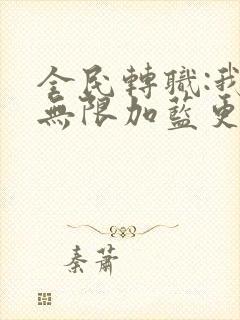 全民轉職:我
無限加藍更
秦蕭